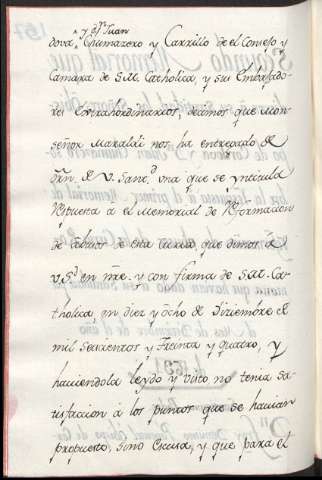 y Dn Juan
dova Chumazero y Carrillo de el Consejo y
Camara de S.M. Catholica, y sus Embajado-
res Extrahordinarios, decimos que Mon-
señor Maraldi nos ha entregado de
Orn. de V. Sand. una que se yntitula
Respuesta a el Memorial de Reformacion
de abusos de esta Curia que dimos a
V.Sd. en nre. y con firma de S.M. Ca-
tholica, en diez y ocho de Diziembre de
mil Seiscientos y Treinta y quatro, y
haviendola leydo y visto no tenia sa-
tisfacion â los puntos que se havian
propuesto, sino escusa, y que para el